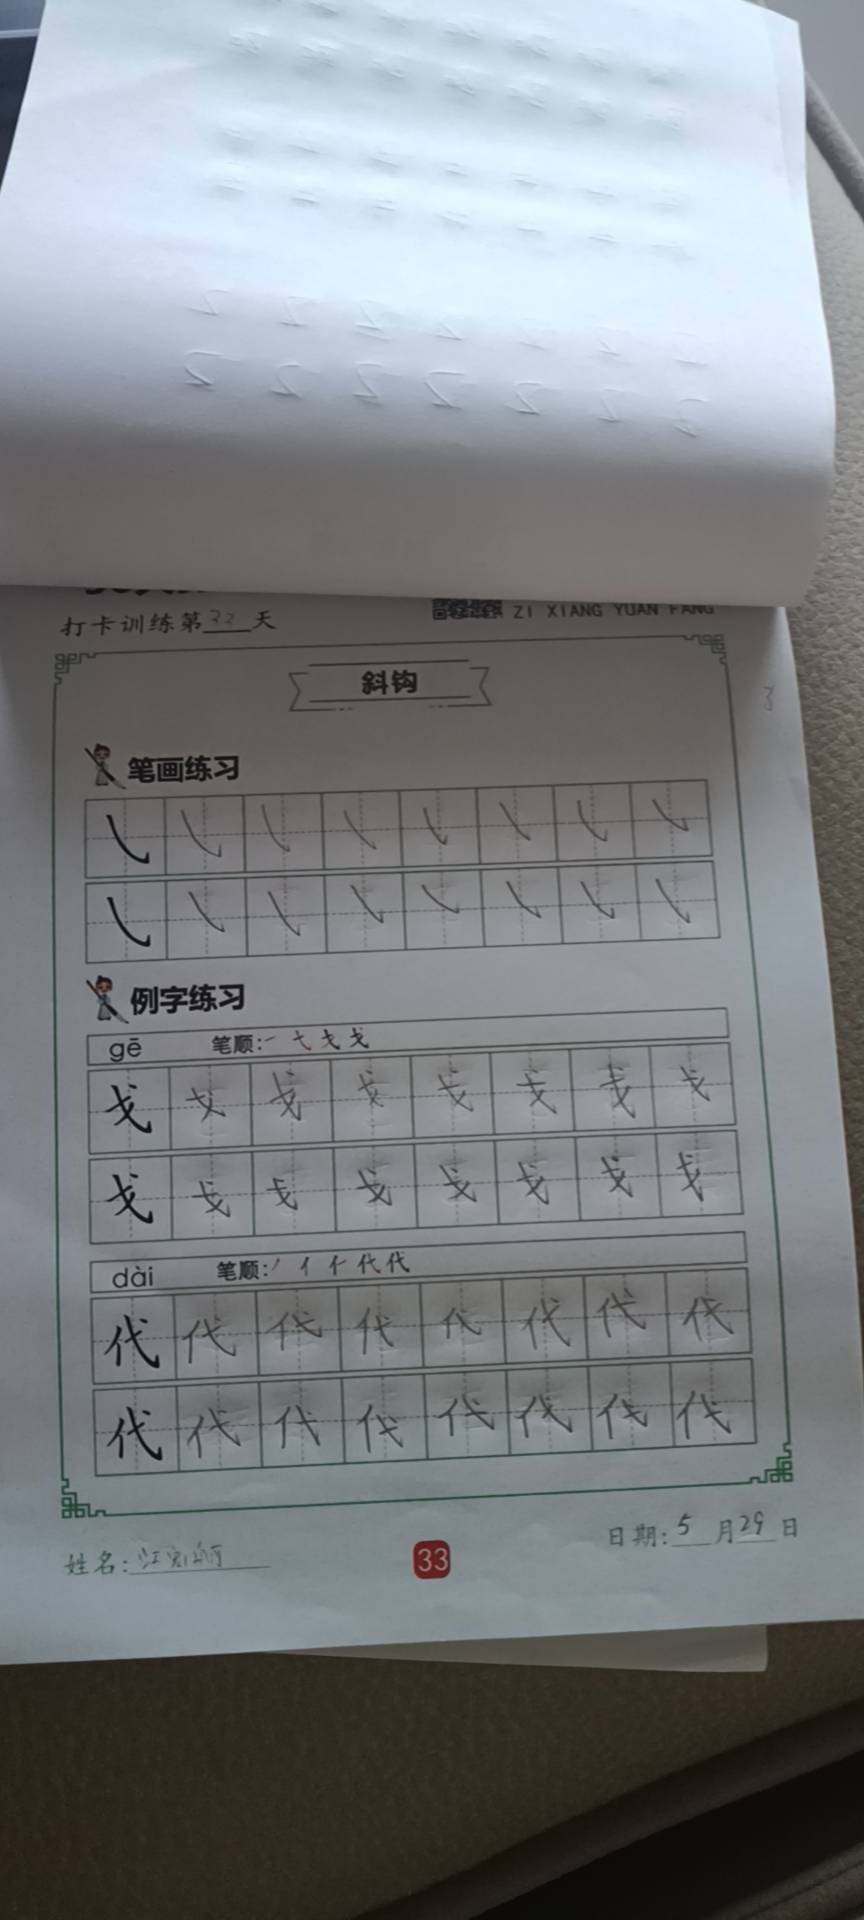 打卡训练第33天
ZI XIANG YUAN FANG
斜钩
笔画练习
例字练习
gē 笔顺:
戈 戈 戈 戈 戈 戈 戈 戈
戈 戈 戈 戈 戈 戈 戈 戈
dài 笔顺: 丿 亻 仁 代 代
代 代 代 代 代 代 代 代
代 代 代 代 代 代 代 代
姓名:
33
日期: 5 月 29 日